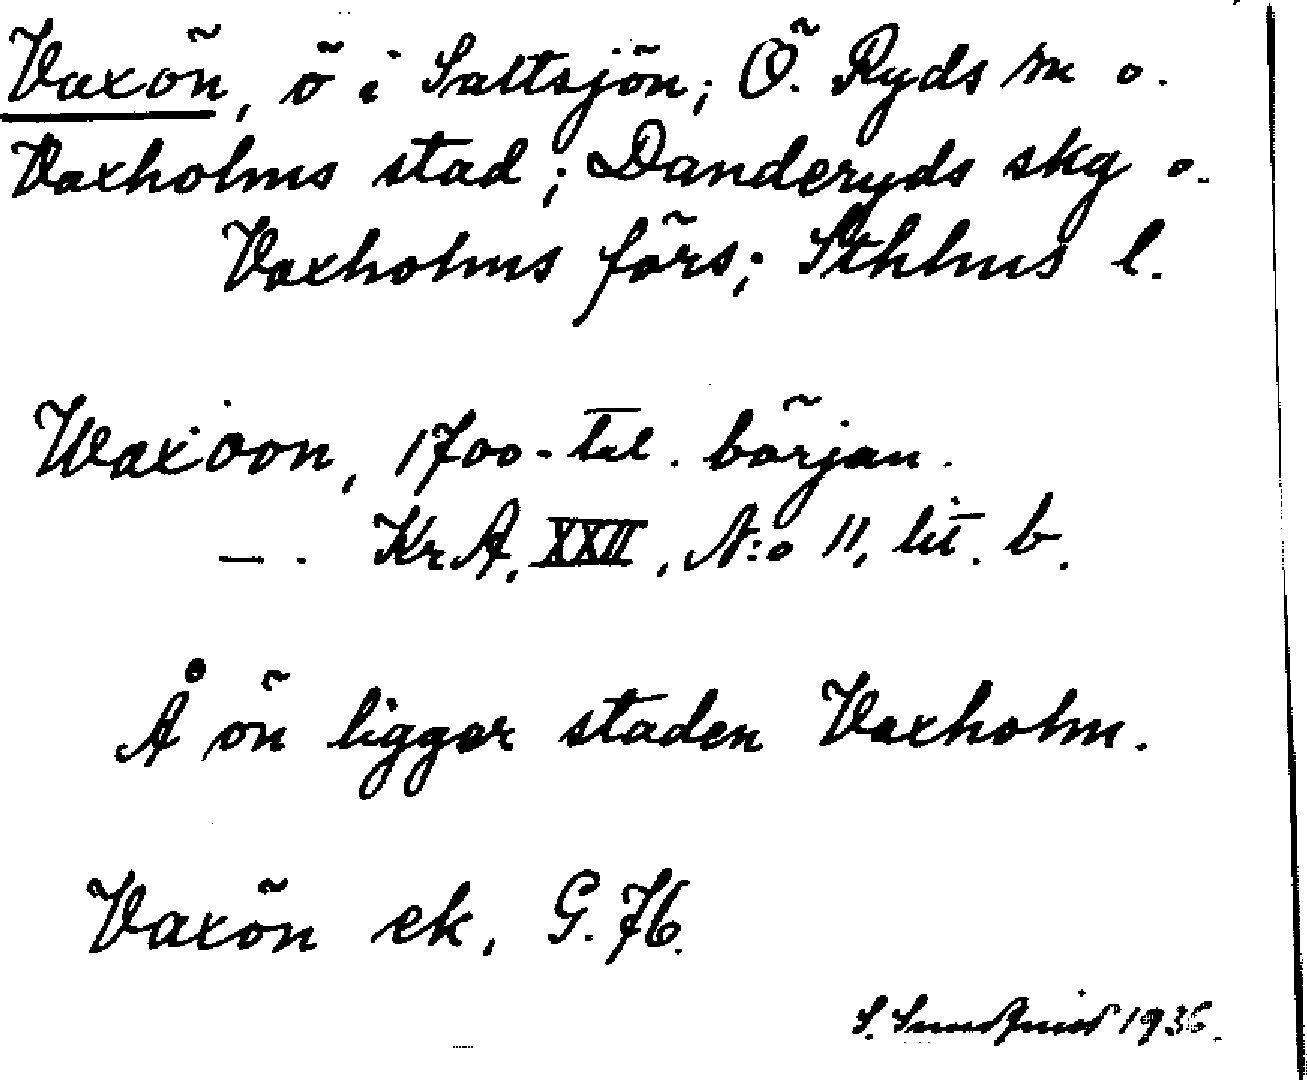 Vaxön, ö i Saltsjön; Ö. Ryds sn o.
Vaxholms stad; Danderyds skg o.
Vaxholms förs; Sthlms l.
Waxöön, 1700-tal. början.
—. KrA, XXII, N:o 11, lit. b.
Å ön ligger staden Vaxholm.
Vaxön ek, G.76.
S. Sundquist 1936.